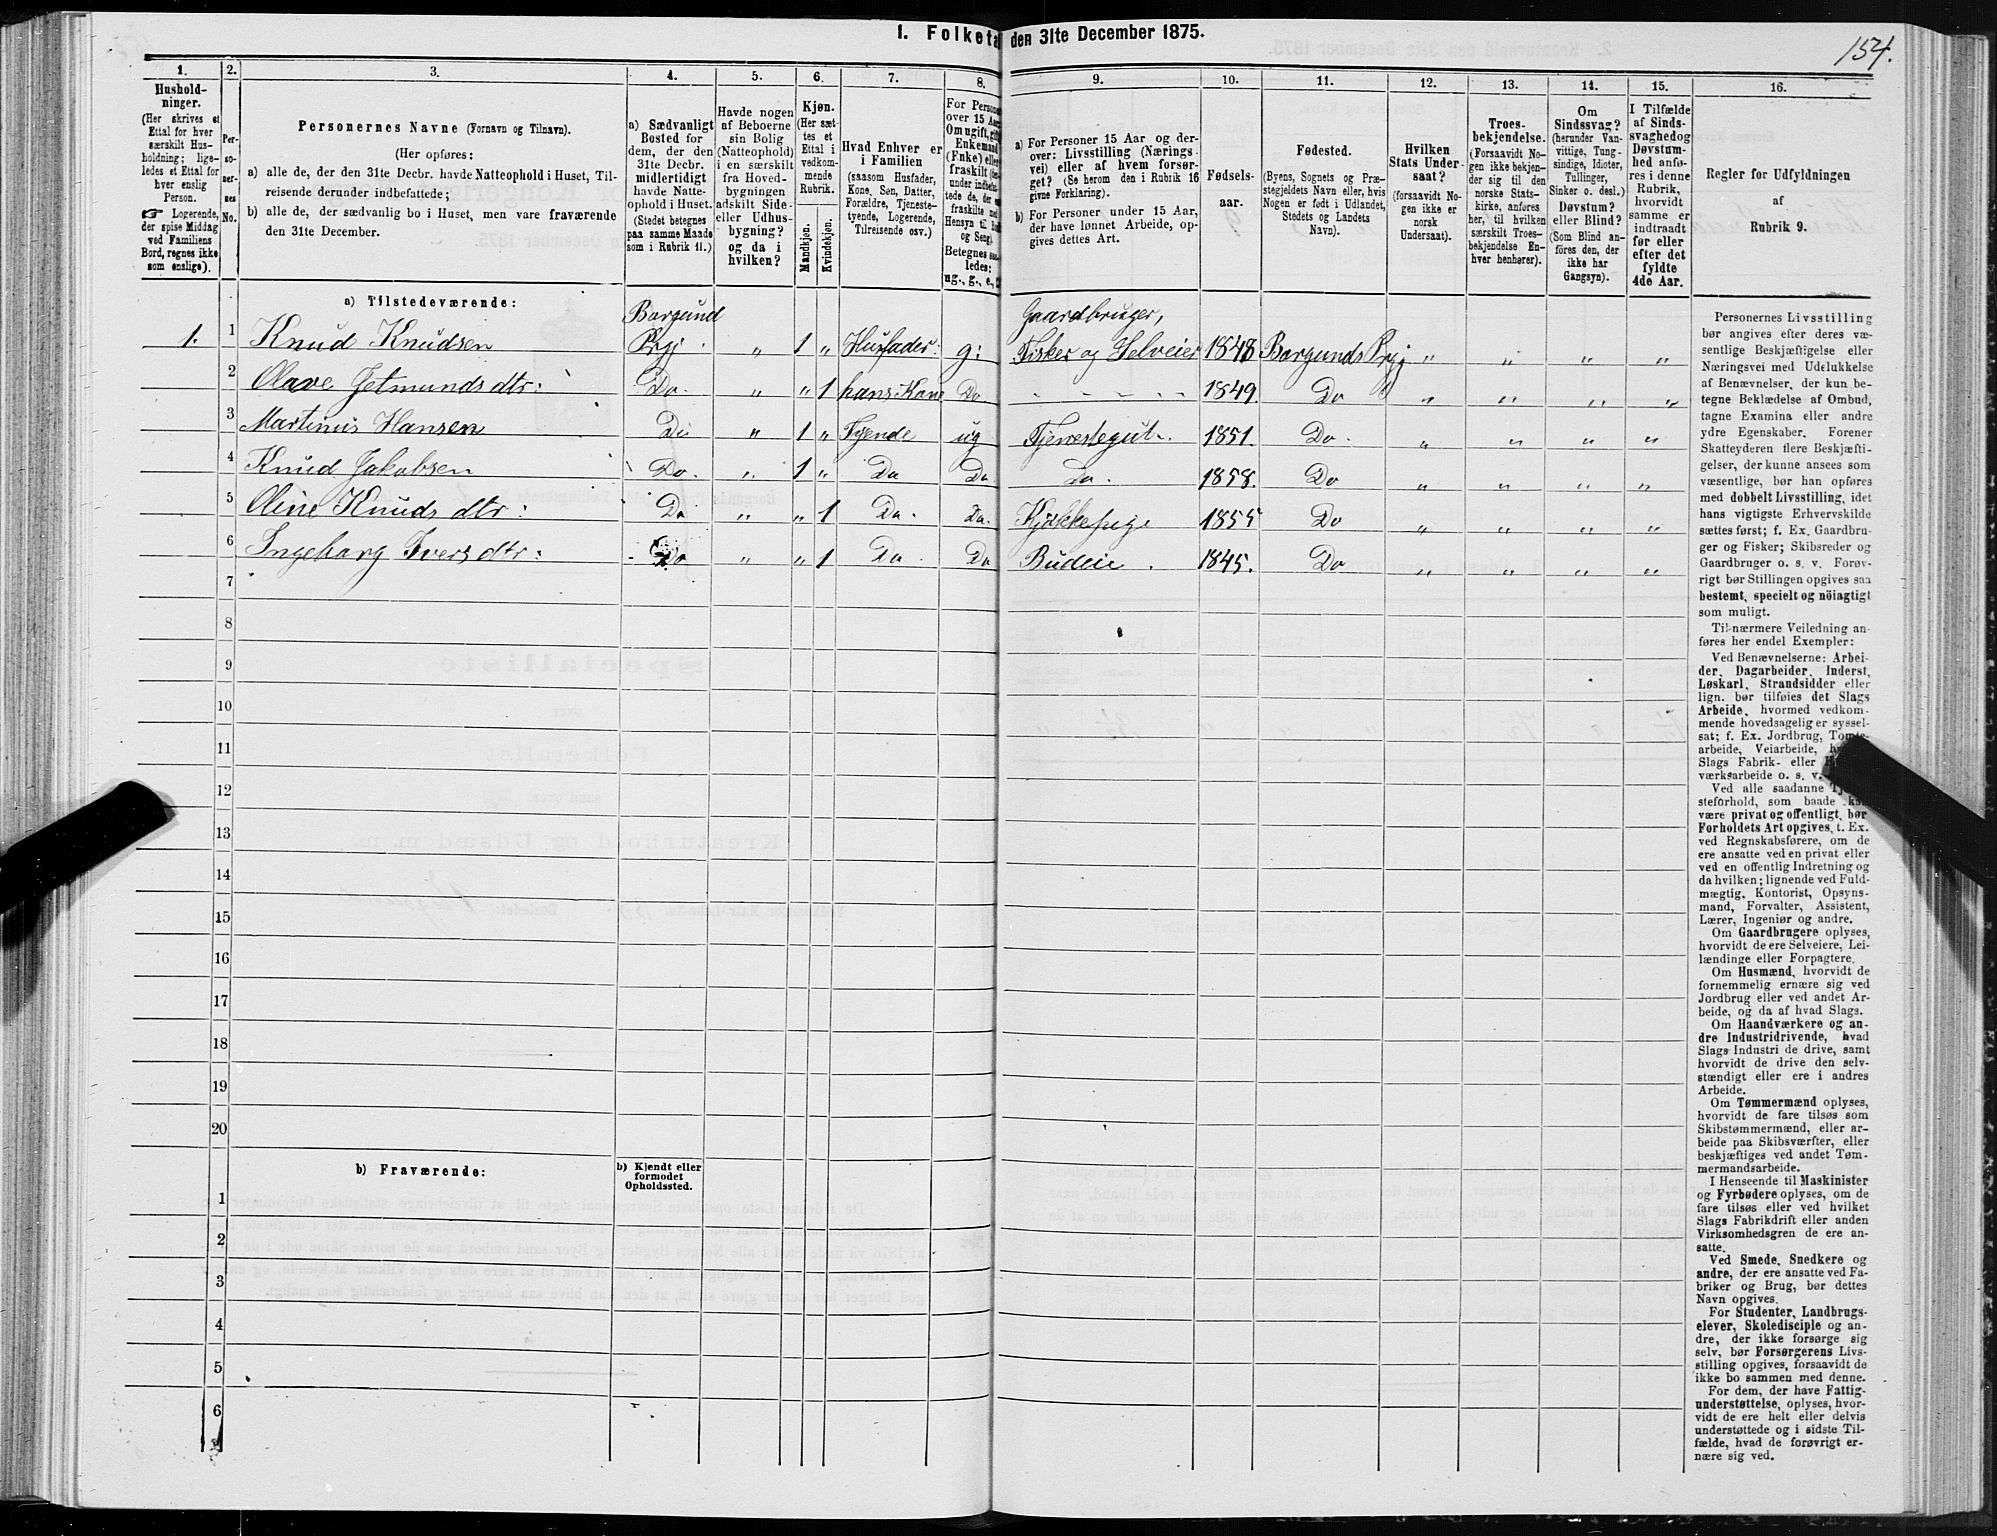 I. Folketal den 31te December 1875.
154.
1. 2. 3. 4. 5. 6. 7. 8. 9. 10. 11. 12. 13. 14. 15. 16.
Hushold-
ninger.
(Her skrives et
Ettal for hver
særskilt Hus-
holdning; lige-
ledes et Ettal for
hver enslig
Person.
☞ Logerende,
der spise Middag
ved Familiens
Bord, regnes ikke
som enslige).
Per-
so-
ner-
nes
No.
Personernes Navne (Fornavn og Tilnavn).
(Her opføres:
a) alle de, der den 31te Decbr. havde Natteophold i Huset, Til-
reisende derunder indbefattede;
b) alle de, der sædvanlig bo i Huset, men vare fraværende
den 31te December.
a) Sædvanligt
Bosted for
dem, der den
31te Decbr.
midlertidigt
havde Natte-
ophold i Huset.
(Stedet betegnes
paa samme Maade
som i Rubrik 11.)
Havde nogen
af Beboerne
sin Bolig
(Natteophold)
i en særskilt
fra Hoved-
bygningen
adskilt Side-
eller Udhus-
bygning?
og da i
hvilken?
Kjøn.
(Her sæt-
tes et
Ettal i
vedkom-
mende
Rubrik.
Mandkjøn.
Kvindekjøn.
Hvad Enhver er
i Familien
(saasom Husfader,
Kone, Søn, Datter,
Forældre, Tjeneste-
tyende, Logerende,
Tilreisende osv.)
For Personer
over 15 Aar:
Om ugift, gift
Enkemand
(Fnke) eller
fraskilt
under indbefat-
tede de, der ere
fraskilte med
Hensyn til Bord
og Seng).
Betegnes saa-
ledes:
ug., g., e.,
a) For Personer 15 Aar og der-
over: Livsstilling (Nærings-
vei) eller af hvem forsør-
get? (Se herom den i Rubrik 16
givne Forklaring).
b) For Personer under 15 Aar,
der have lønnet Arbeide, op-
gives dettes Art.
Fødsels-
aar.
Fødested.
(Byens, Sognets og Præ-
stegjeldets Navn eller, hvis
Nogen er født i Udlandet,
Stedets og Landets
Navn).
Hvilken
Stats Under-
saat?
(forsaavidt No-
gen ikke er
norsk
Undersaat).
Troes-
bekjendelse.
(Forsaavidt No-
gen ikke bekjen-
der sig til den
norske Stats-
kirke, anføres
her, til hvilken
særskilt Troes-
bekjendelse En-
hver henhører).
Om
Sindssvag?
(herunder Van-
vittige, Tung-
sindige, Idioter,
Tullinger,
Sinker o. desl.)
Døvstum?
eller Blind?
(Som Blind an-
føres den, der
ikke har
Gangsyn).
I Tilfælde
af Sinds-
svaghedog
Døvstum-
hed anfø-
res i denne
Rubrik,
hvorvidt
samme er
indtraadt
før eller
efter det
fyldte
4de Aar.
Regler for Udfyldningen
af
Rubrik 9.
a) Tilstedeværende:
Borgund Gaardbruger,
1. 1 Knud Knudsen Prgj. „ 1 „ Husfader: g: Fisker og Selveier 1848 Borgunds Prgj „ „ „ „
2 Olave Jetmunds dtr: Do. „ „ 1 hans Kone Do. - - - - - 1849. Do „ „ „ „
3 Martinus Hansen Do „ 1 „ Tyende ug Tjenestegut. 1851. Do. „ „ „ „
4 Knud Jakobsen Do. „ 1 „ Do Do. do. 1858. Do „ „ „ „
5 Oline Knuds dtr: Do „ „ 1 Do. Do. Kjøkkepige 1855 Do „ „ „ „
6 Ingeborg Ivers dtr: Do „ „ 1 Do. Do Budeie. 1845. Do „ „ „ „
7
8
9
10
11
12
13
14
15
16
17
18
19
20
b) Fraværende:
b) Kjendt eller
formodet
Opholdssted.
1
2
3
4
5
6
Personernes Livsstilling
bør angives efter deres væ-
sentlige Beskjæftigelse eller
Næringsvei med Udelukkelse
af Benævnelser, der kun be-
tegne Beklædelse af Ombud,
tagne Examina eller andre
ydre Egenskaber. Forener
Skatteyderen flere Beskjæfti-
gelser, der kunne ansees som
væsentlige, bør han opføres
med dobbelt Livsstilling, idet
hans vigtigste Erhvervskilde
sættes først; f. Ex. Gaardbru-
ger og Fisker; Skibsreder og
Gaardbruger o. s. v. Forøv-
rigt bør Stillingen opgives saa
bestemt, specielt og nöiagtigt
som muligt.
Til nærmere Veiledning an-
føres her endel Exempler:
Ved Benævnelserne: Arbei-
der, Dagarbeider, Inderst,
Løskarl, Strandsidder eller
lign. bør tilføies det Slags
Arbeide, hvormed vedkom-
mende hovedsagelig er syssel-
sat; f. Ex. Jordbrug, Tomte-
arbeide, Veiarbeide,
Slags Fabrik- eller
værksarbeide o. s. v.
Ved alle saadanne
steforhold, som baade
være privat og offentligt, bør
Forholdets Art opgives, t. Ex.
ved Regnskabsførere, om de
ere ansatte ved en privat eller
ved en offentlig Indretning og
da hvilken; lignende ved Fuld-
mægtig, Kontorist, Opsyns-
mand, Forvalter, Assistent,
Lærer, Ingeniør og andre.
Om Gaardbrugere oplyses,
hvorvidt de ere Selveiere, Lei-
lændinge eller Forpagtere.
Om Husmænd, hvorvidt de
fornemmelig ernære sig ved
Jordbrug eller ved andet Ar-
beide, og da af hvad Slags.
Om Haandværkere og an-
dre Industridrivende, hvad
Slags Industri de drive, samt
hvorvidt de drive den selv-
stændigt eller ere i andres
Arbeide.
Om Tømmermænd oplyses,
hvorvidt de fare tilsøs som
Skibstømmermænd, eller ar-
beide paa Skibsværfter, eller
beskjæftiges ved andet Tøm-
mermandsarbeide.
I Henseende til Maskinister
og Fyrbødere oplyses, om de
fare tilsøs eller ved hvilket
Slags Fabrikdrift eller anden
Virksomhedsgren de ere an-
satte.
Ved Smede, Snedkere og
andre, der ere ansatte ved Fa-
briker og Brug, bør dettes
Navn opgives.
For Studenter, Landbrugs-
elever, Skoledisciple og an-
dre, der ikke forsørge sig
selv, bør Forsørgerens Livs-
stilling opgives, forsaavidt de
ikke bo sammen med denne.
For dem, der have Fattig-
understøttelse, oplyses, hvor-
vidt de ere helt eller delvis
understøttede og i sidste Til-
fælde, hvad de forøvrigt er-
nære sig ved.